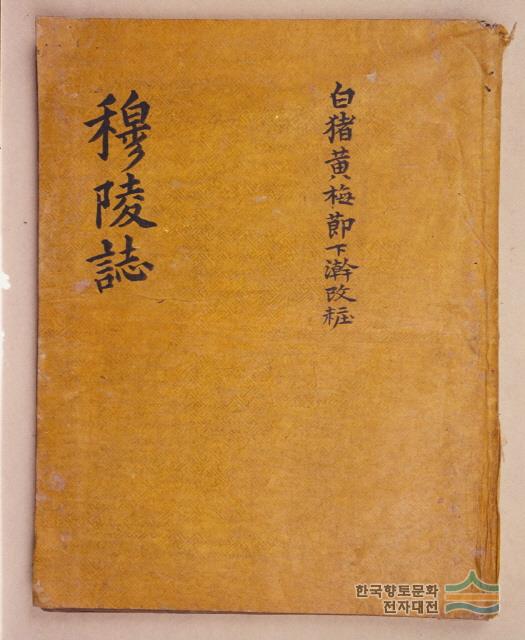 穆陵誌
白猪黄梅節下澣改粧
한국향토문화
전자대전